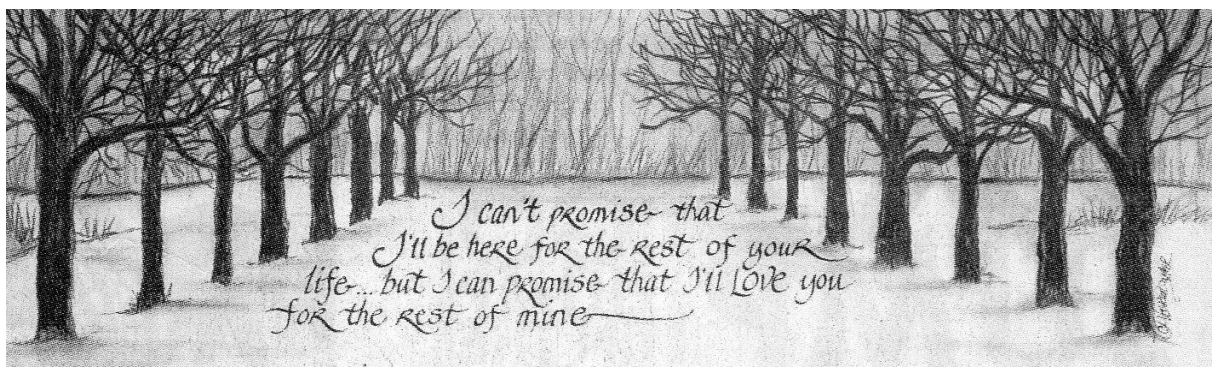 I can't promise that
I'll be here for the rest of your
life...but I can promise that I'll Love you
for the rest of mine